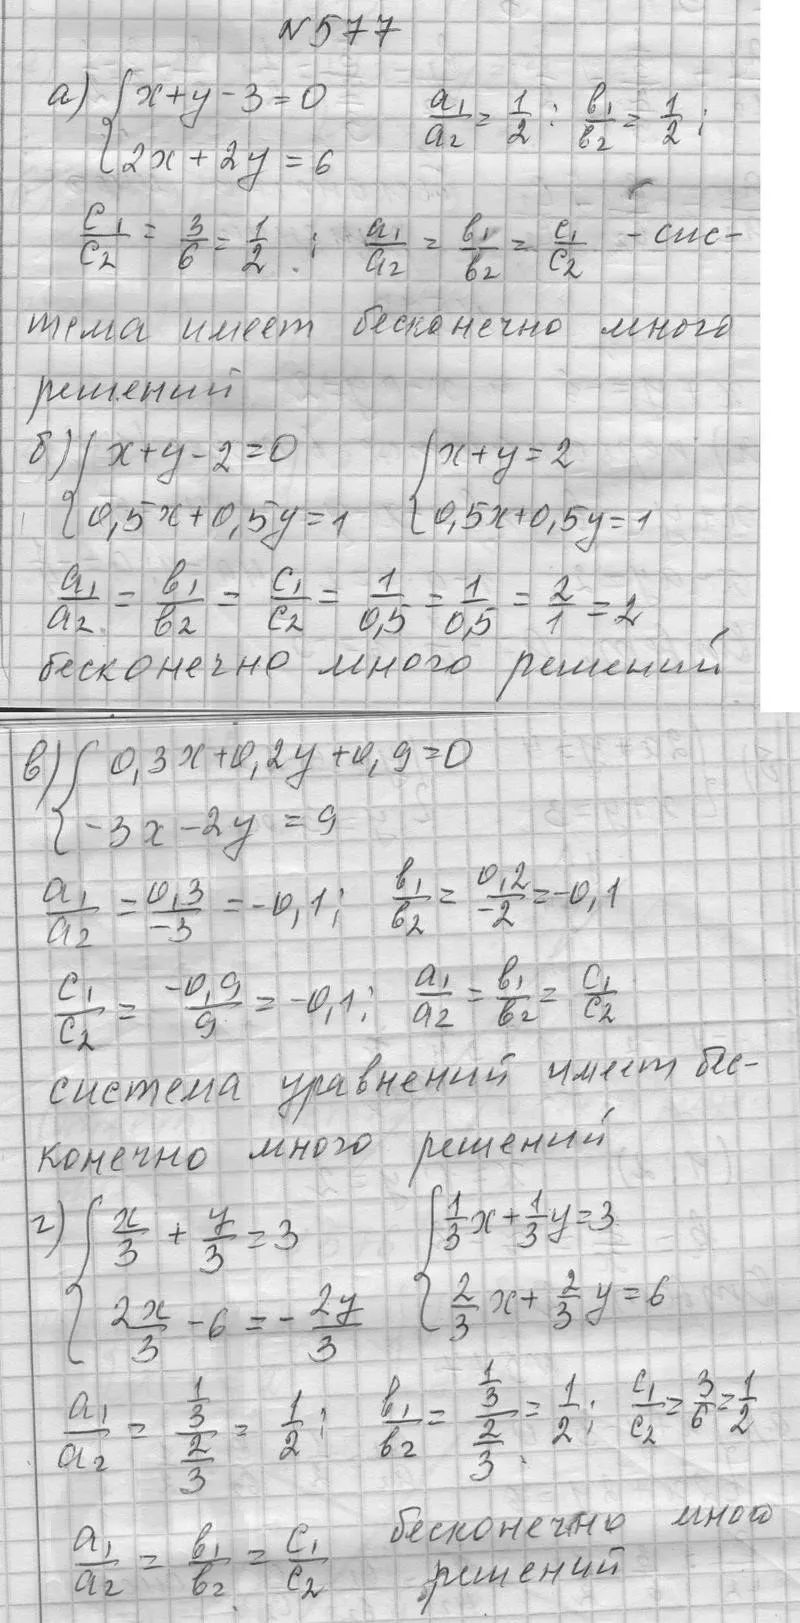 N577
а) { x+y-3=0   a₁/a₂ = 1/2 ; в₁/в₂ = 1/2 ;
{ 2x+2y=6
c₁/c₂ = 3/6 = 1/2 ; a₁/a₂ = в₁/в₂ = c₁/c₂ - сис-
тема имеет бесконечно много
решений
б) { x+y-2=0   { x+y=2
{ 0,5x+0,5y=1   { 0,5x+0,5y=1
a₁/a₂ = в₁/в₂ = c₁/c₂ = 1/0,5 = 1/0,5 = 2/1 = 2
бесконечно много решений
в) { 0,3x+0,2y+0,9=0
{ -3x-2y=9
a₁/a₂ = 0,3/-3 = -0,1; в₁/в₂ = 0,2/-2 = -0,1
c₁/c₂ = -0,9/9 = -0,1; a₁/a₂ = в₁/в₂ = c₁/c₂
система уравнений имеет бес-
конечно много решений
г) { x/3 + y/3 = 3   { 1/3x+1/3y=3
{ 2x/3 - 6 = - 2y/3   { 2/3x+2/3y=6
a₁/a₂ = 1/3 / 2/3 = 1/2 ; в₁/в₂ = 1/3 / 2/3 = 1/2 ; c₁/c₂ = 3/6 = 1/2
a₁/a₂ = в₁/в₂ = c₁/c₂ бесконечно много
решений